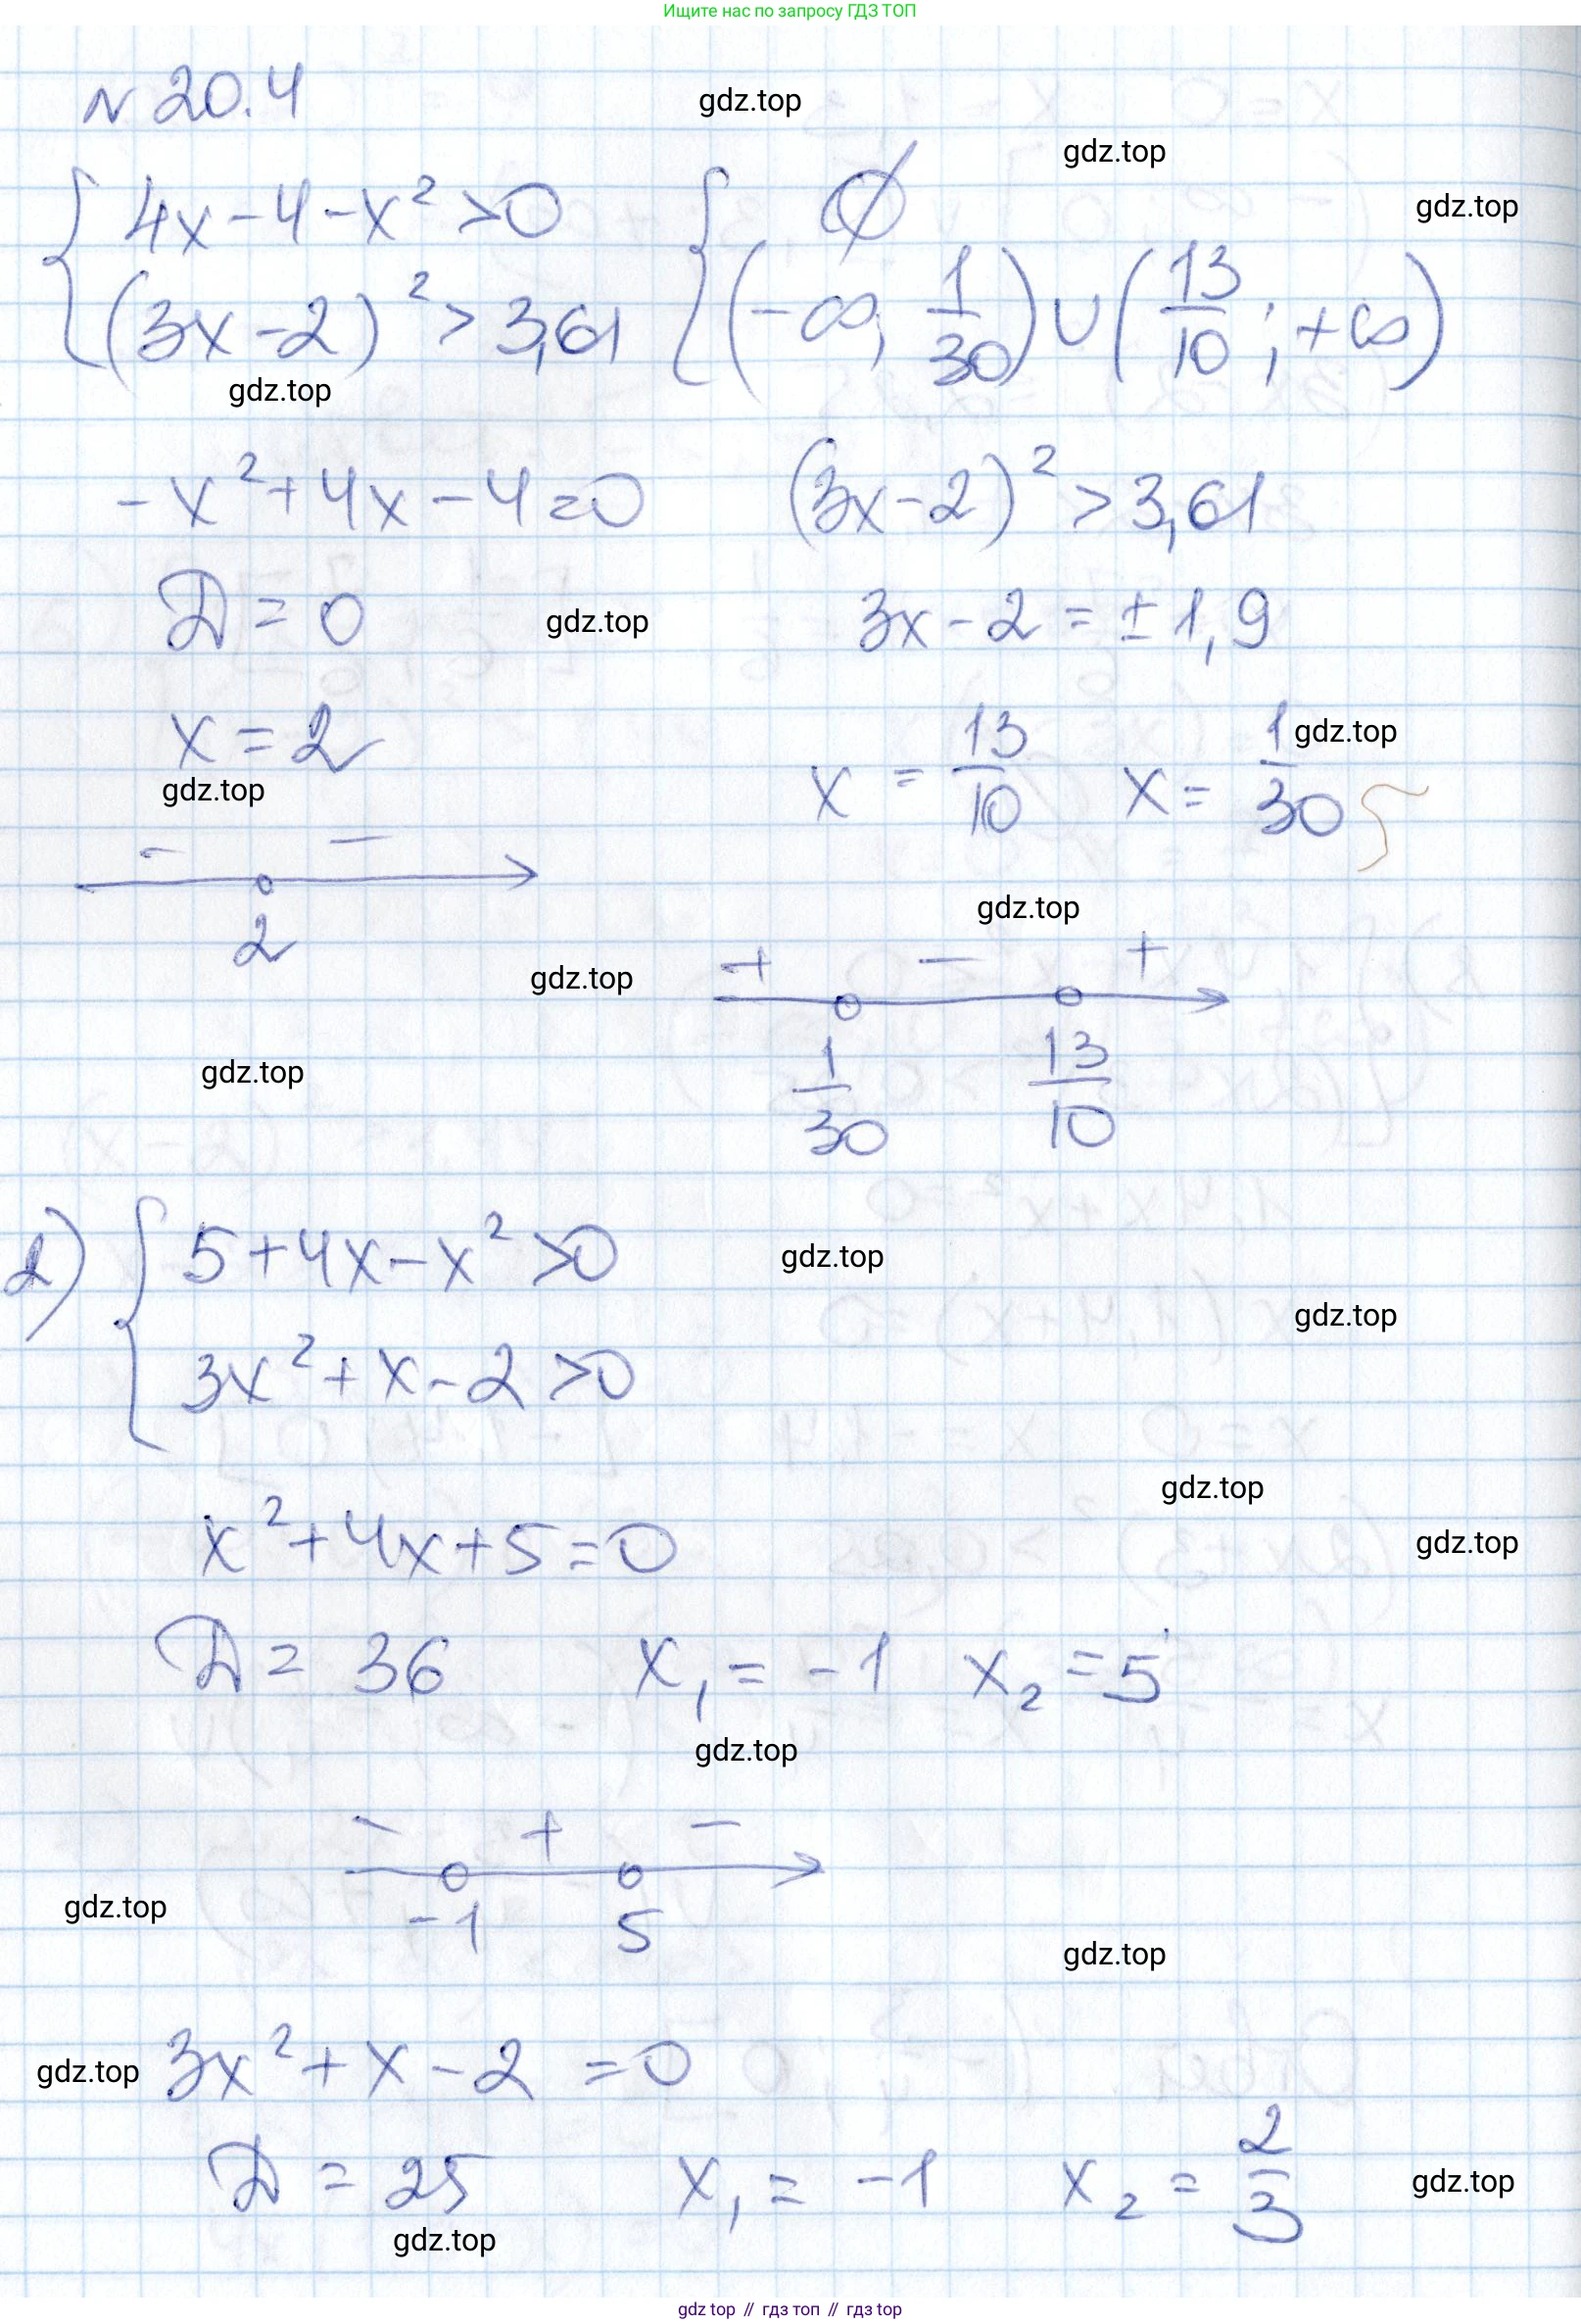 Ищите нас по запросу ГДЗ ТОП
N 20.4
gdz.top
gdz.top
{ 4x - 4 - x² > 0 { ∅
gdz.top
(3x - 2)² > 3,61 (-∞; 1/30) ∪ (13/10; +∞)
gdz.top
-x² + 4x - 4 = 0 (3x - 2)² > 3,61
Д = 0 gdz.top 3x - 2 = ± 1,9
x = 2 x = 13/10 x = 1/30 gdz.top
gdz.top
- -
2
gdz.top
gdz.top
+ - +
1/30 13/10
gdz.top
2) { 5 + 4x - x² > 0
gdz.top
gdz.top
3x² + x - 2 > 0
gdz.top
x² + 4x + 5 = 0
gdz.top
Д = 36 x₁ = -1 x₂ = 5
gdz.top
- + -
-1 5
gdz.top
gdz.top
gdz.top 3x² + x - 2 = 0
Д = 25 x₁ = -1 x₂ = 2/3 gdz.top
gdz.top
gdz top // гдз топ // гдз top